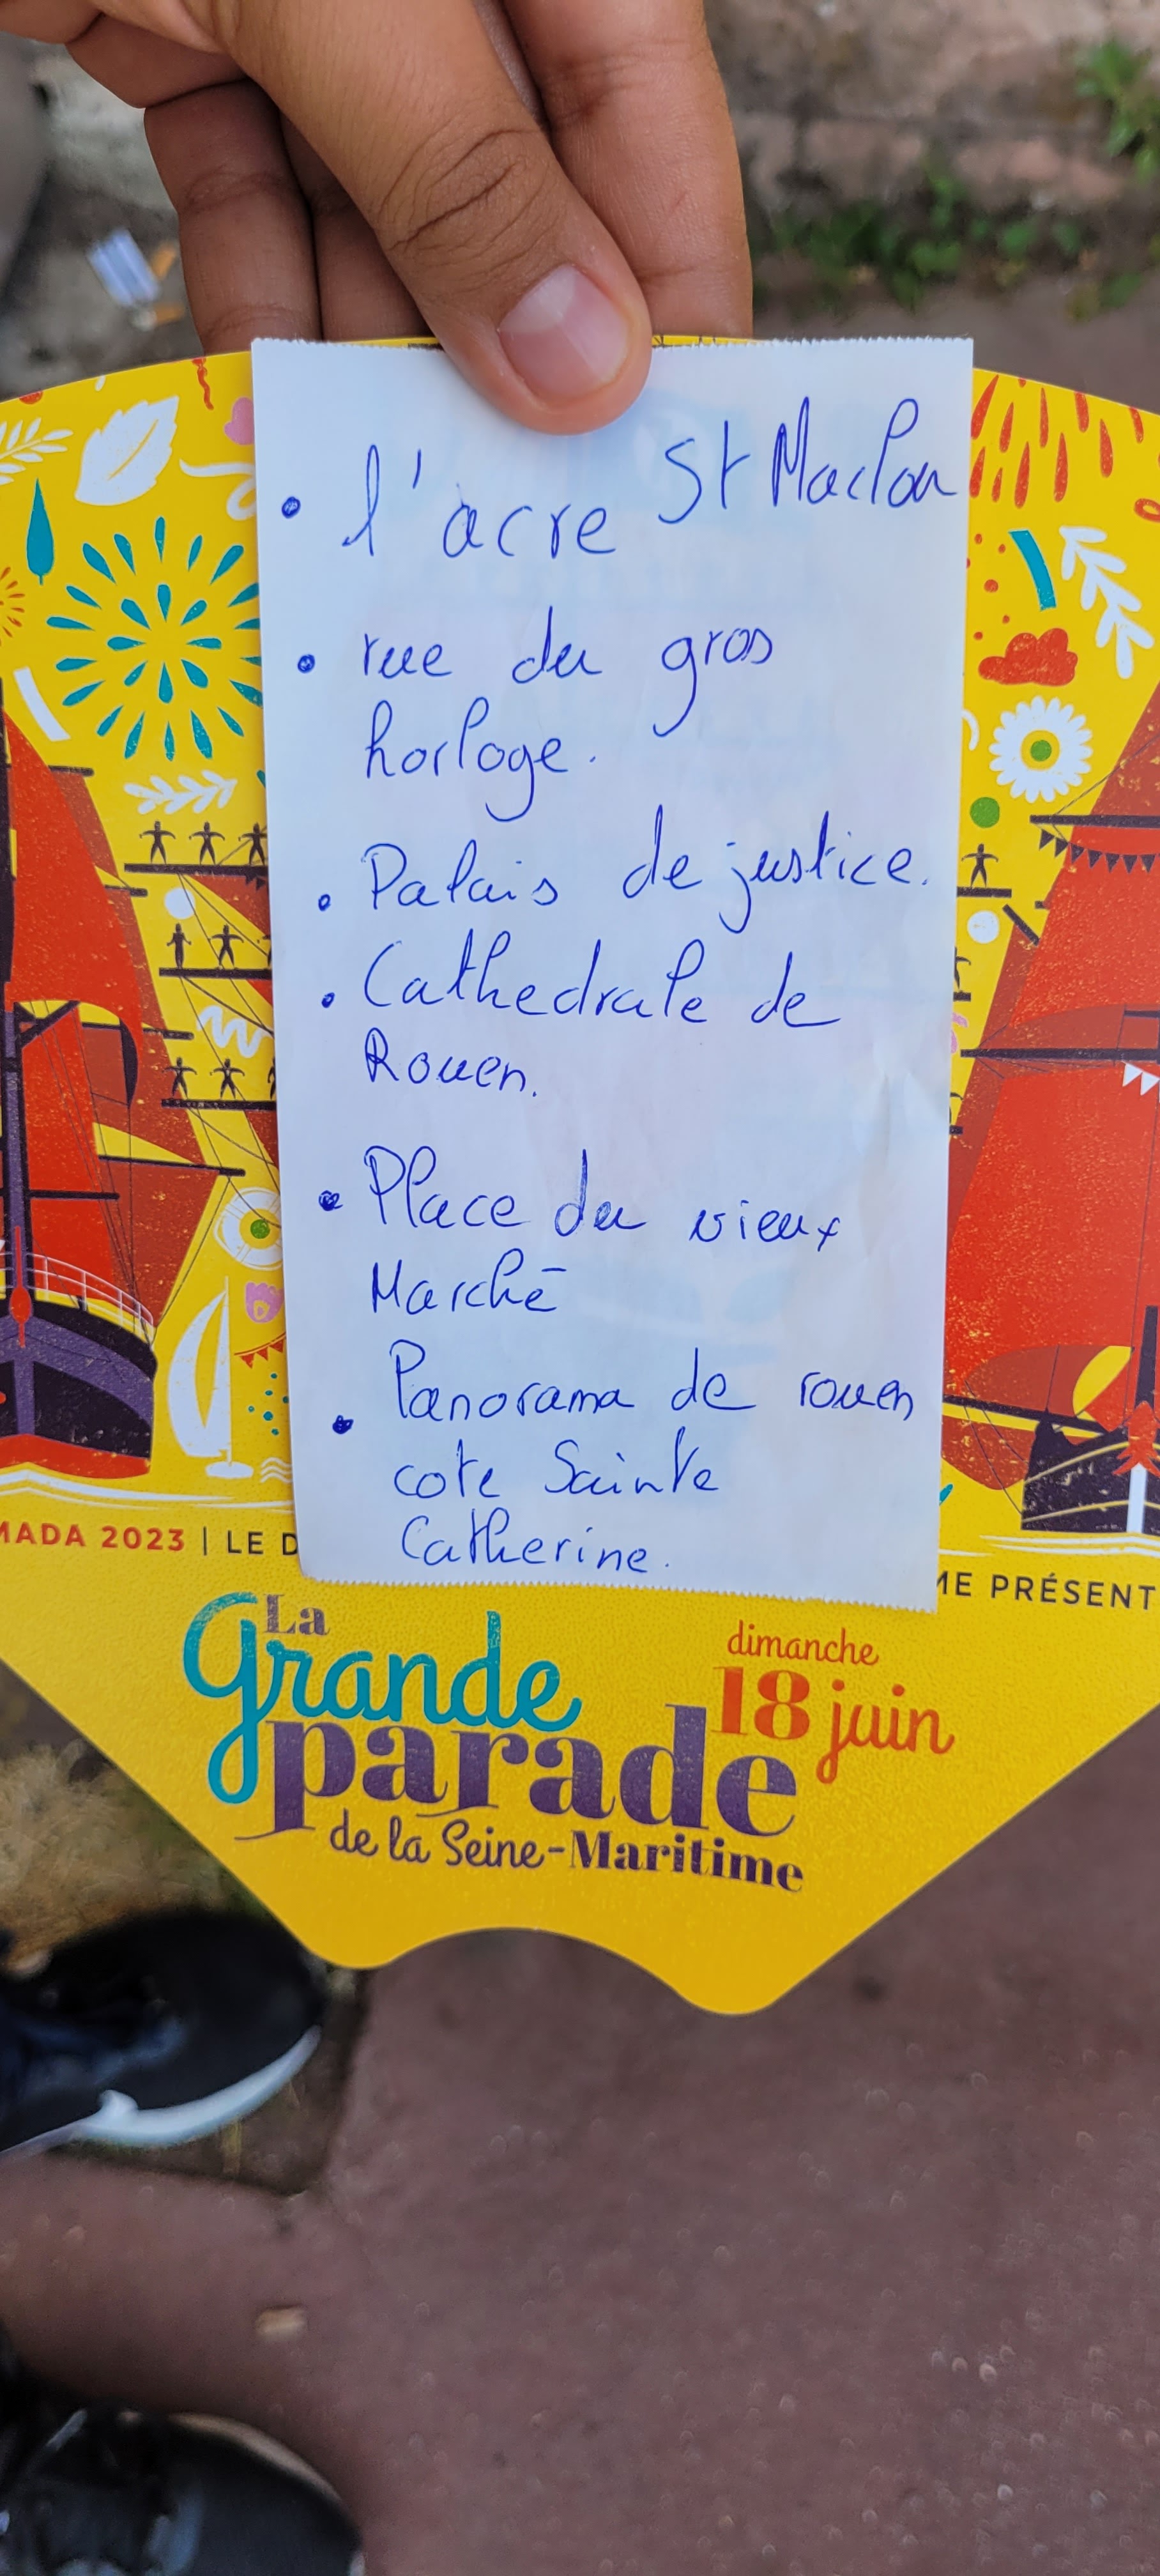 • l'acre St Maclou
• rue du gros
horloge.
• Palais de justice.
• Cathedrale de
Rouen.
• Place du vieux
Marché
• Panorama de rouen
cote Sainte
Catherine.
MADA 2023 | LE D
ME PRÉSENT
La
Grande
parade
de la Seine-Maritime
dimanche
18 juin